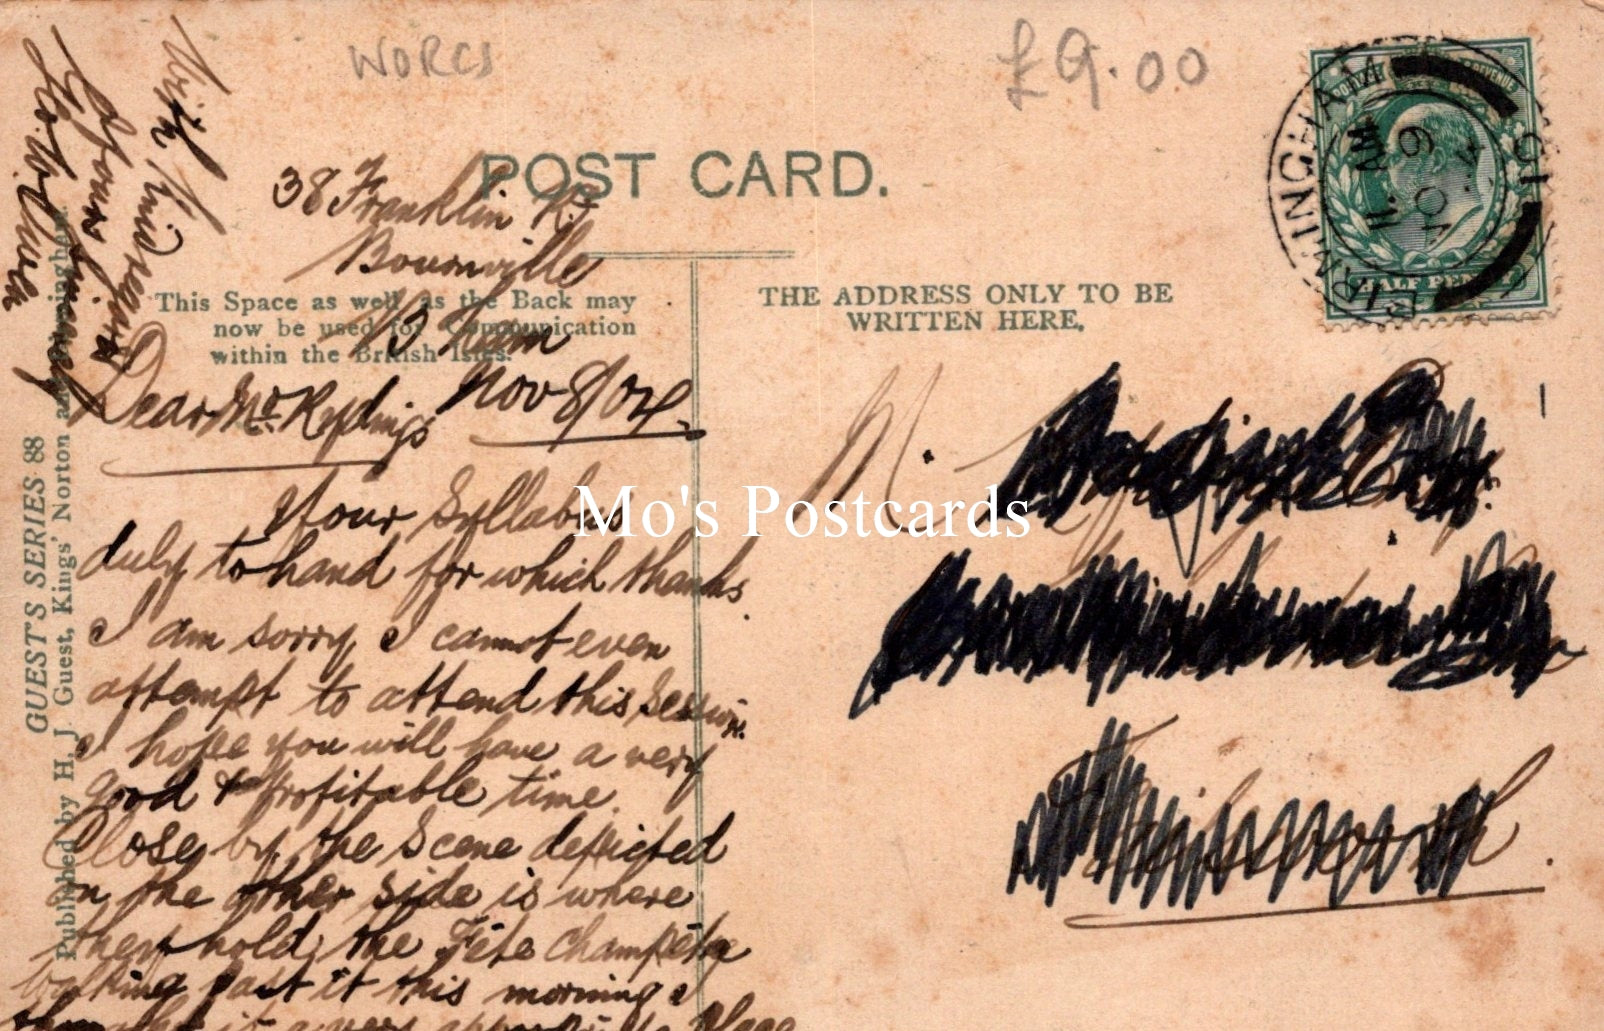 WORCS
£9.00
POST CARD.
BIRMINGHAM
11. AM
NO 9
04
POSTAGE & REVENUE
HALF PENNY
This Space as well as the Back may
now be used for Communication
within the British Isles.
THE ADDRESS ONLY TO BE
WRITTEN HERE.
GUEST'S SERIES 88
Published by H. J. Guest, Kings' Norton and Birmingham.
38 Franklin Rd
Bournville
B'ham
Nov 8/04.
Dear Mr. Rydings
Your Syllabus
duly to hand for which thanks.
I am sorry I cannot even
attempt to attend this session.
I hope you will have a very
good & profitable time.
Close by the scene depicted
on the other side is where
they hold the Fête Champêtre
walking past it this morning I
thought it a very appropriate place
With kind regards
Yours sincerely
Mo's Postcards